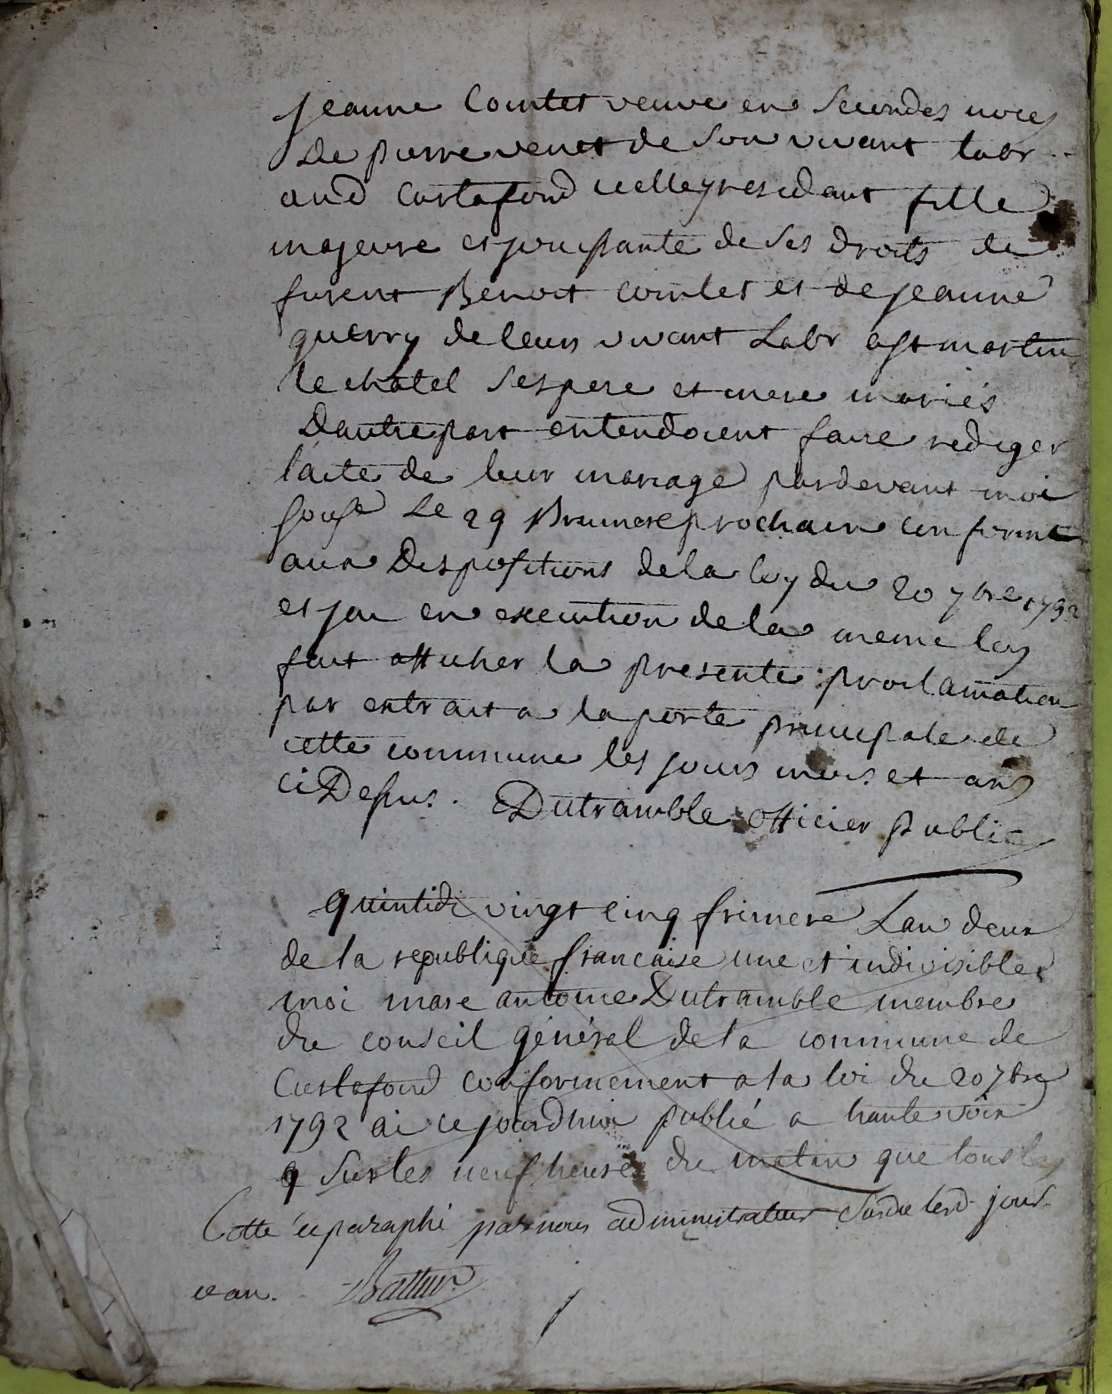 jeanne Comtet veuve en secondes noces
de pierre venet de son vivant labr
aud Curtafond icelle y residant fille
majeure et jouissante de ses droits de
furent Benoit comtet et de jeanne
guerry de leurs vivant Labr a st martin
le chatel ses pere et mere mariés
Dautre part entendoient faire rediger
lacte de leur mariage pardevant moi
souss Le 29 Brumere prochain conformt
aux Dispositions de la loy du 20 7bre 1792
et jai en execution de la meme loy
fait afficher la presente proclamation
par extrait a la porte principale de
cette commune les jours mois et an
ci Dessus. Dutramble officier public
quintidi vingt cinq frimere Lan deux
de la republique francaise une et indivisible
moi marc antoine Dutramble membre
du conseil général de la commune de
Curtafond conformement a la loi du 20 7bre
1792 ai ce jourdhui publié a haute voix
sur les neuf heures du matin que tous les
Cotte et paraphé par nous administrateur susdit lesd jour
et an. Battur